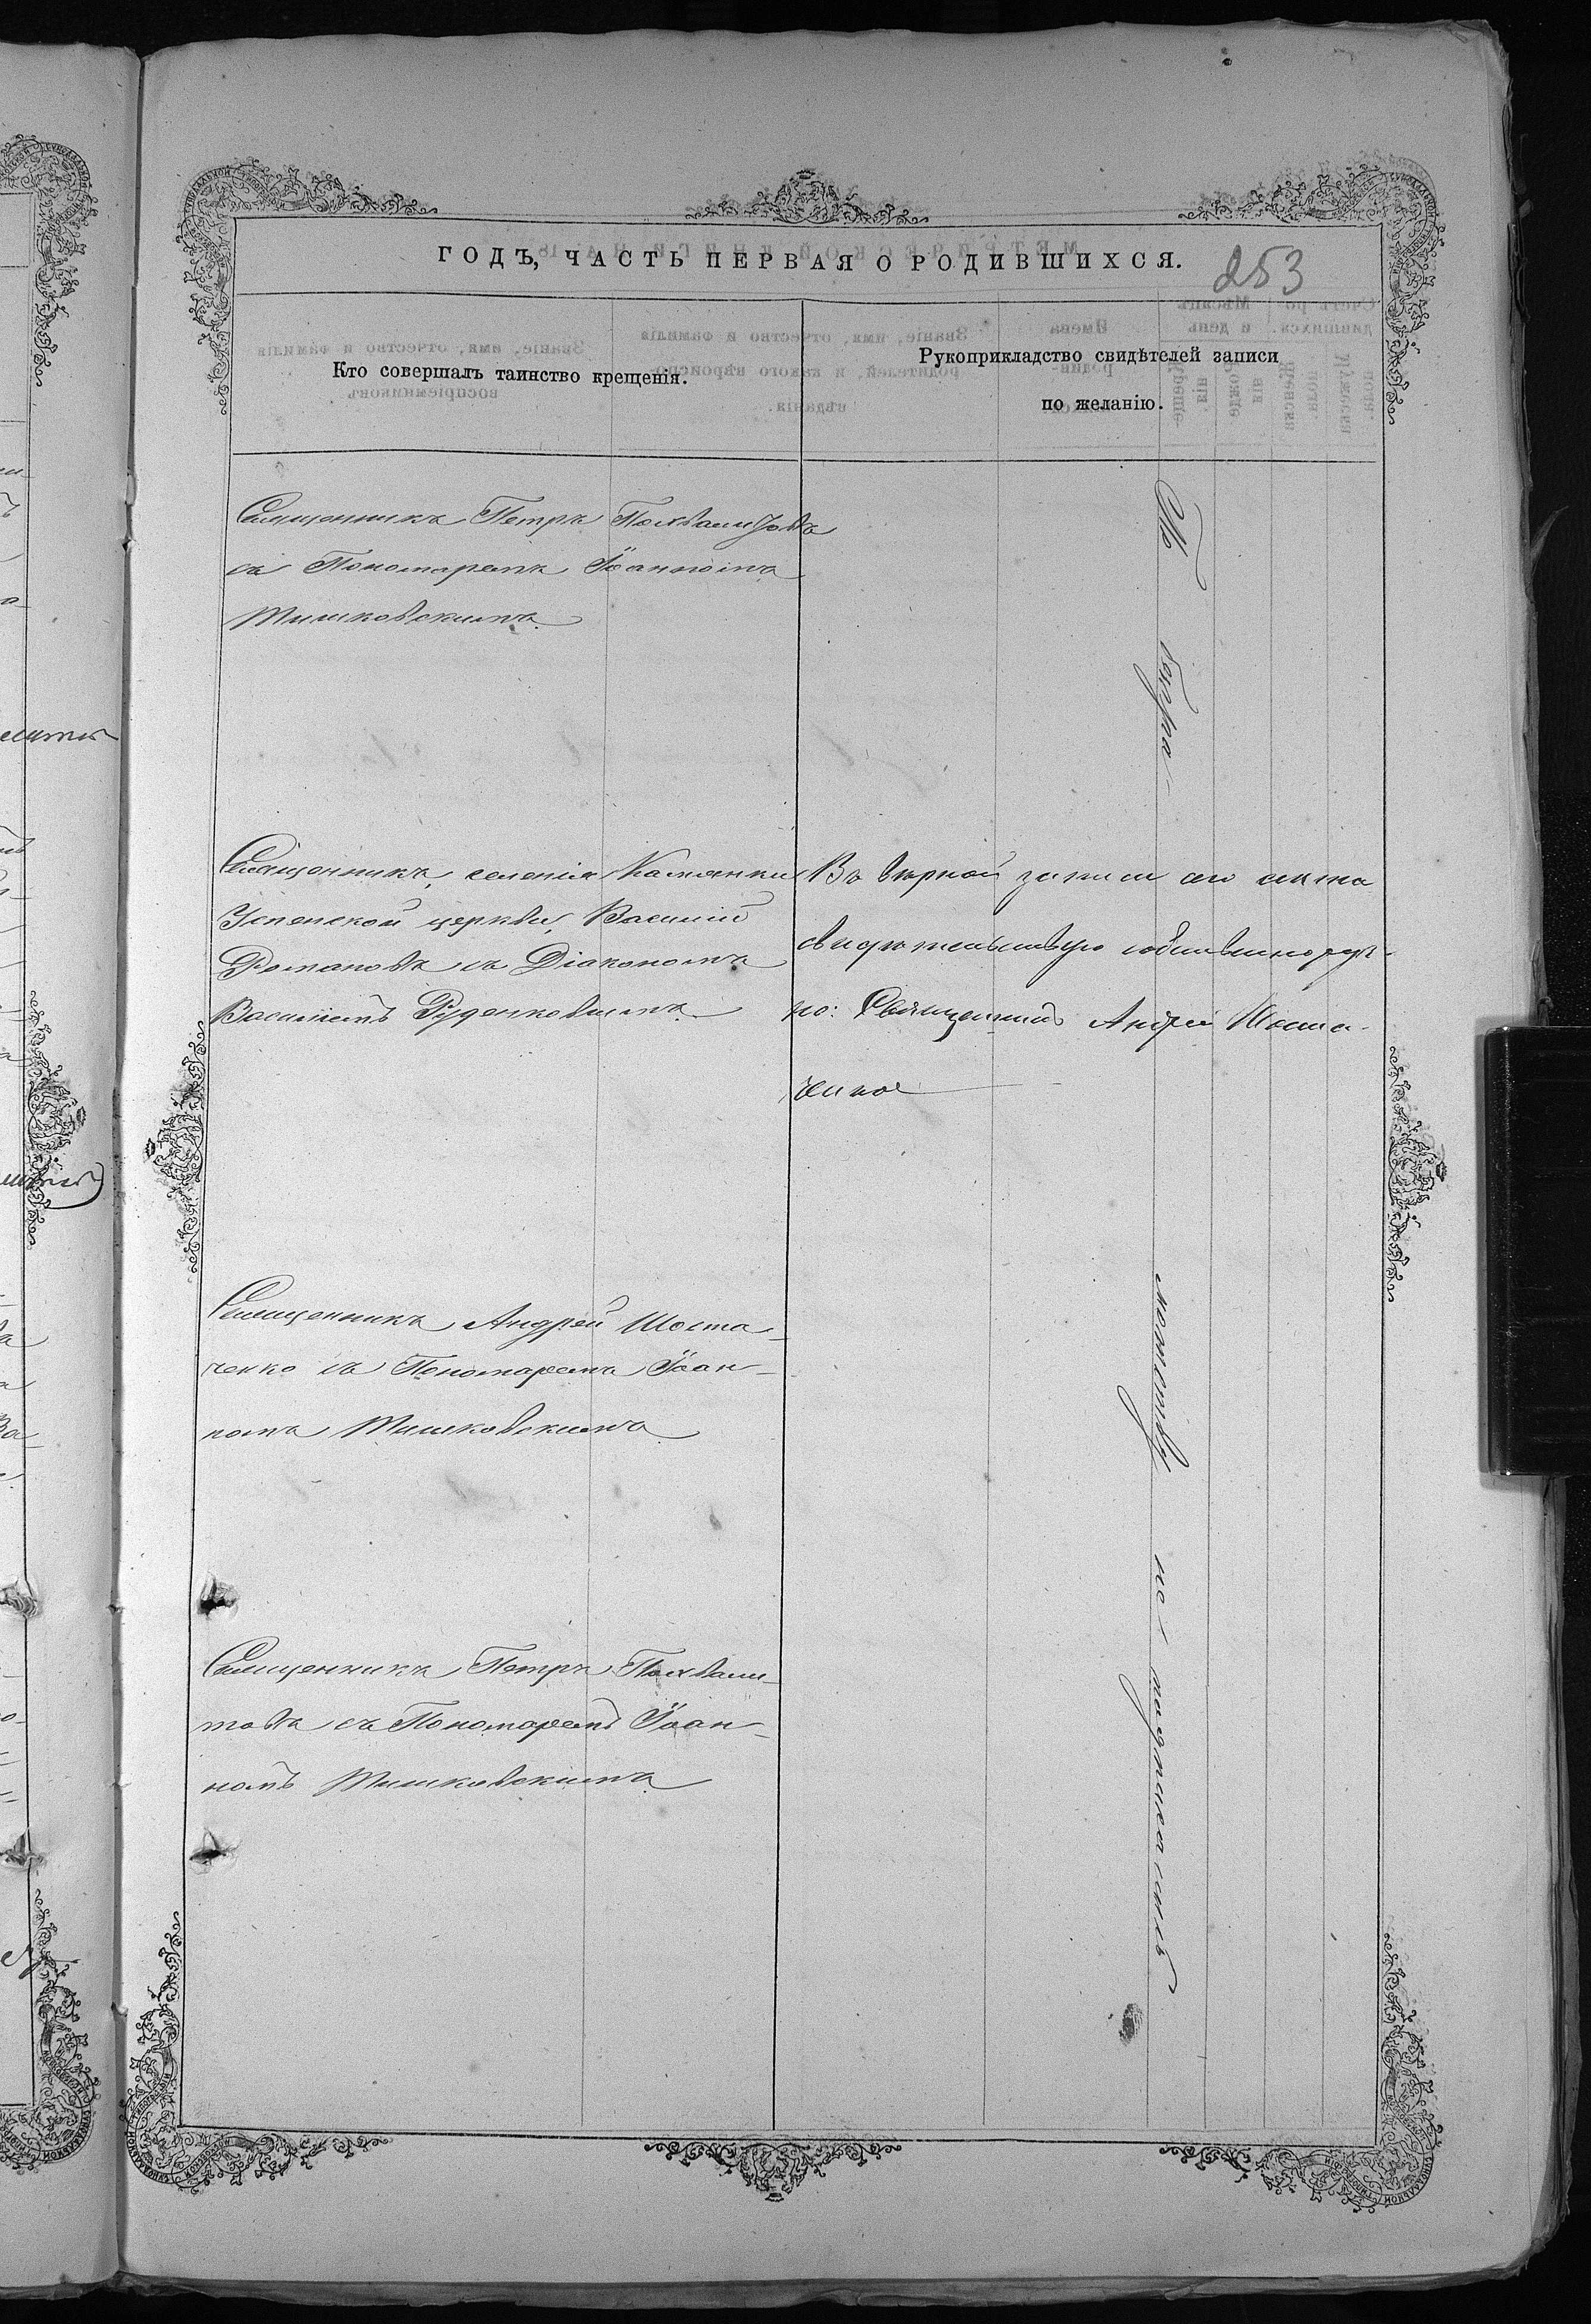 ГОДЪ, ЧАСТЬ ПЕРВАЯ О РОДИВШИХСЯ.
253
Кто совершалъ таинство крещенія.
Рукоприкладство свидѣтелей записи
по желанію.
Священникъ Петръ Похвалитовъ
съ Пономаремъ Іоанномъ
Мишковскимъ
Священникъ, селенія Камянки
Успенской церкви, Василій
Романовъ съ Діакономъ
Василіемъ Руденковымъ
Въ вѣрной записи сего акта
свидѣтельствую собственноруч-
но: Священникъ Андрей Шоста-
ченко
Священникъ Андрей Шоста-
ченко съ Пономаремъ Іоан-
номъ Мишковскимъ
Священникъ Петръ Похвали-
товъ съ Пономаремъ Іоан-
номъ Мишковскимъ
по листамъ